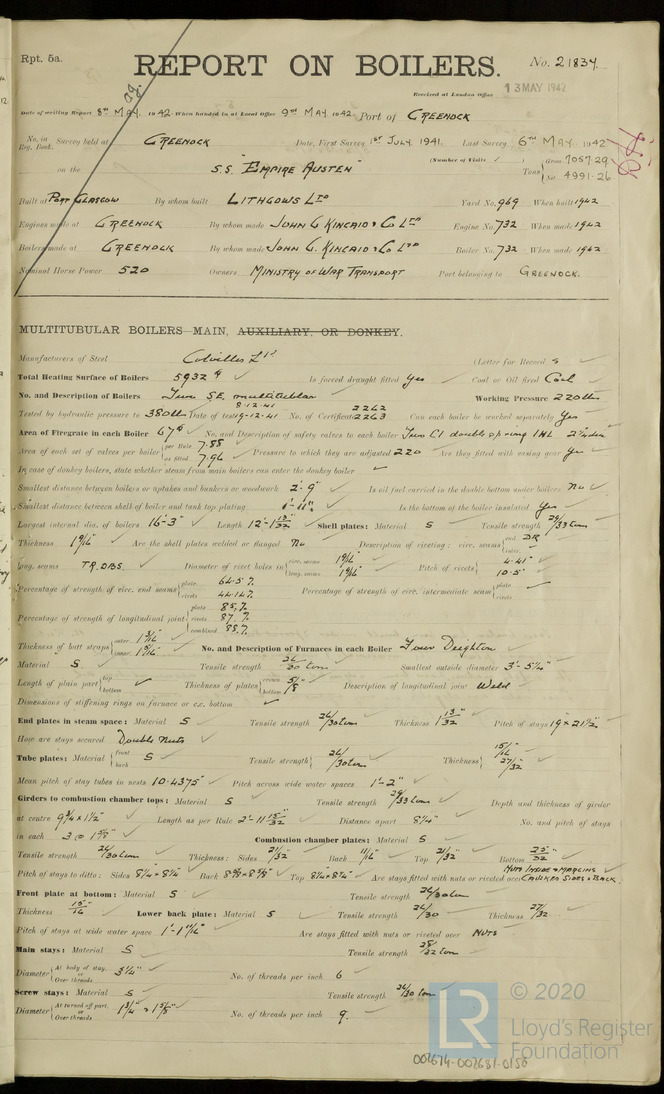 Rpt. 5a.
REPORT ON BOILERS.
No. 21834
Received at London Office 13 MAY 1942
Date of writing Report 8th MAY. 1942 When handed in at Local Office 9th MAY 1942 Port of GREENOCK
No. in Reg. Book. Survey held at GREENOCK Date, First Survey 1st JULY. 1941. Last Survey 6th MAY. 1942
(Number of Visits ) Gross 7057.29
on the S.S. "EMPIRE AUSTEN" Tons Net 4991.26
Built at PORT GLASGOW By whom built LITHGOWS LTD Yard No. 969 When built 1942
Engines made at GREENOCK By whom made JOHN G. KINCAID & CO LTD Engine No. 732 When made 1942
Boilers made at GREENOCK By whom made JOHN G. KINCAID & CO LTD Boiler No. 732 When made 1942
Nominal Horse Power 520 Owners MINISTRY OF WAR TRANSPORT Port belonging to GREENOCK.
MULTITUBULAR BOILERS MAIN, AUXILIARY, OR DONKEY.
Manufacturers of Steel Colvilles Ltd (Letter for Record S
Total Heating Surface of Boilers 5932 Is forced draught fitted Yes Coal or Oil fired Coal
No. and Description of Boilers Two SE. multitubular Working Pressure 220 lbs
Tested by hydraulic pressure to 380 lbs Date of test 8-12-41 9-12-41 No. of Certificate 2262 2263 Can each boiler be worked separately Yes
Area of Firegrate in each Boiler No. and Description of safety valves to each boiler Two CI double spring 1HL
Area of each set of valves per boiler per Rule 7.88 as fitted 7.96 Pressure to which they are adjusted 220 Are they fitted with easing gear Yes
In case of donkey boilers, state whether steam from main boilers can enter the donkey boiler
Smallest distance between boilers or uptakes and bunkers or woodwork 2'-9" Is oil fuel carried in the double bottom under boilers No
Smallest distance between shell of boiler and tank top plating 1'-11" Is the bottom of the boiler insulated Yes
Largest internal dia. of boilers 16'-3" Length 12'-1 13/32 Shell plates: Material S Tensile strength 29/33 tons
Thickness 1 9/16 Are the shell plates welded or flanged No Description of riveting: circ. seams end DR inter.
long. seams TR.DBS. Diameter of rivet holes in circ. seams 1 9/16 long. seams 1 9/16 Pitch of rivets 4.41" 10.5"
Percentage of strength of circ. end seams plate 64.5 % rivets 44.14% Percentage of strength of circ. intermediate seam plate rivets
Percentage of strength of longitudinal joint plate 85.% rivets 87. % combined 88.%
Thickness of butt straps outer 1 3/16 inner 1 5/16 No. and Description of Furnaces in each Boiler Four Deighton
Material S Tensile strength 26/30 tons Smallest outside diameter 3'-5 1/4"
Length of plain part top bottom Thickness of plates crown bottom 5/8 Description of longitudinal joint Weld
Dimensions of stiffening rings on furnace or c.c. bottom
End plates in steam space: Material S Tensile strength 26/30 tons Thickness 1 13/32 Pitch of stays 19 x 21 1/2"
How are stays secured Double Nuts
Tube plates: Material front back S Tensile strength 26/30 tons Thickness 15/16" 27/32
Mean pitch of stay tubes in nests 10.4375" Pitch across wide water spaces 1'-2"
Girders to combustion chamber tops: Material S Tensile strength 29/33 tons Depth and thickness of girder
at centre 9 3/4 x 1 1/2" Length as per Rule 2'-11 15/32 Distance apart 8 1/4" No. and pitch of stays
in each 3 @ Combustion chamber plates: Material S
Tensile strength 26/30 tons Thickness: Sides 21/32 Back 11/16 Top 21/32 Bottom 23/32
NUTS INSIDE & MARGINS
Pitch of stays to ditto: Sides 8 1/4 x 8 1/4 Back Top 8 1/4 x 8 1/4 Are stays fitted with nuts or riveted over CAULKED SIDES & BACK.
Front plate at bottom: Material S Tensile strength 26/30 tons
Thickness 15/16 Lower back plate: Material S Tensile strength 26/30 Thickness 27/32
Pitch of stays at wide water space 1'-1 11/16" Are stays fitted with nuts or riveted over NUTS
Main stays: Material S Tensile strength 28/32 tons
Diameter At body of stay, or Over threads 3 1/4" No. of threads per inch 6
Screw stays: Material S Tensile strength 26/30 tons
Diameter At turned off part, or Over threads 1 3/4 & 1 5/8" No. of threads per inch 9.
LR © 2020
Lloyd's Register
Foundation
002674-002681-0156